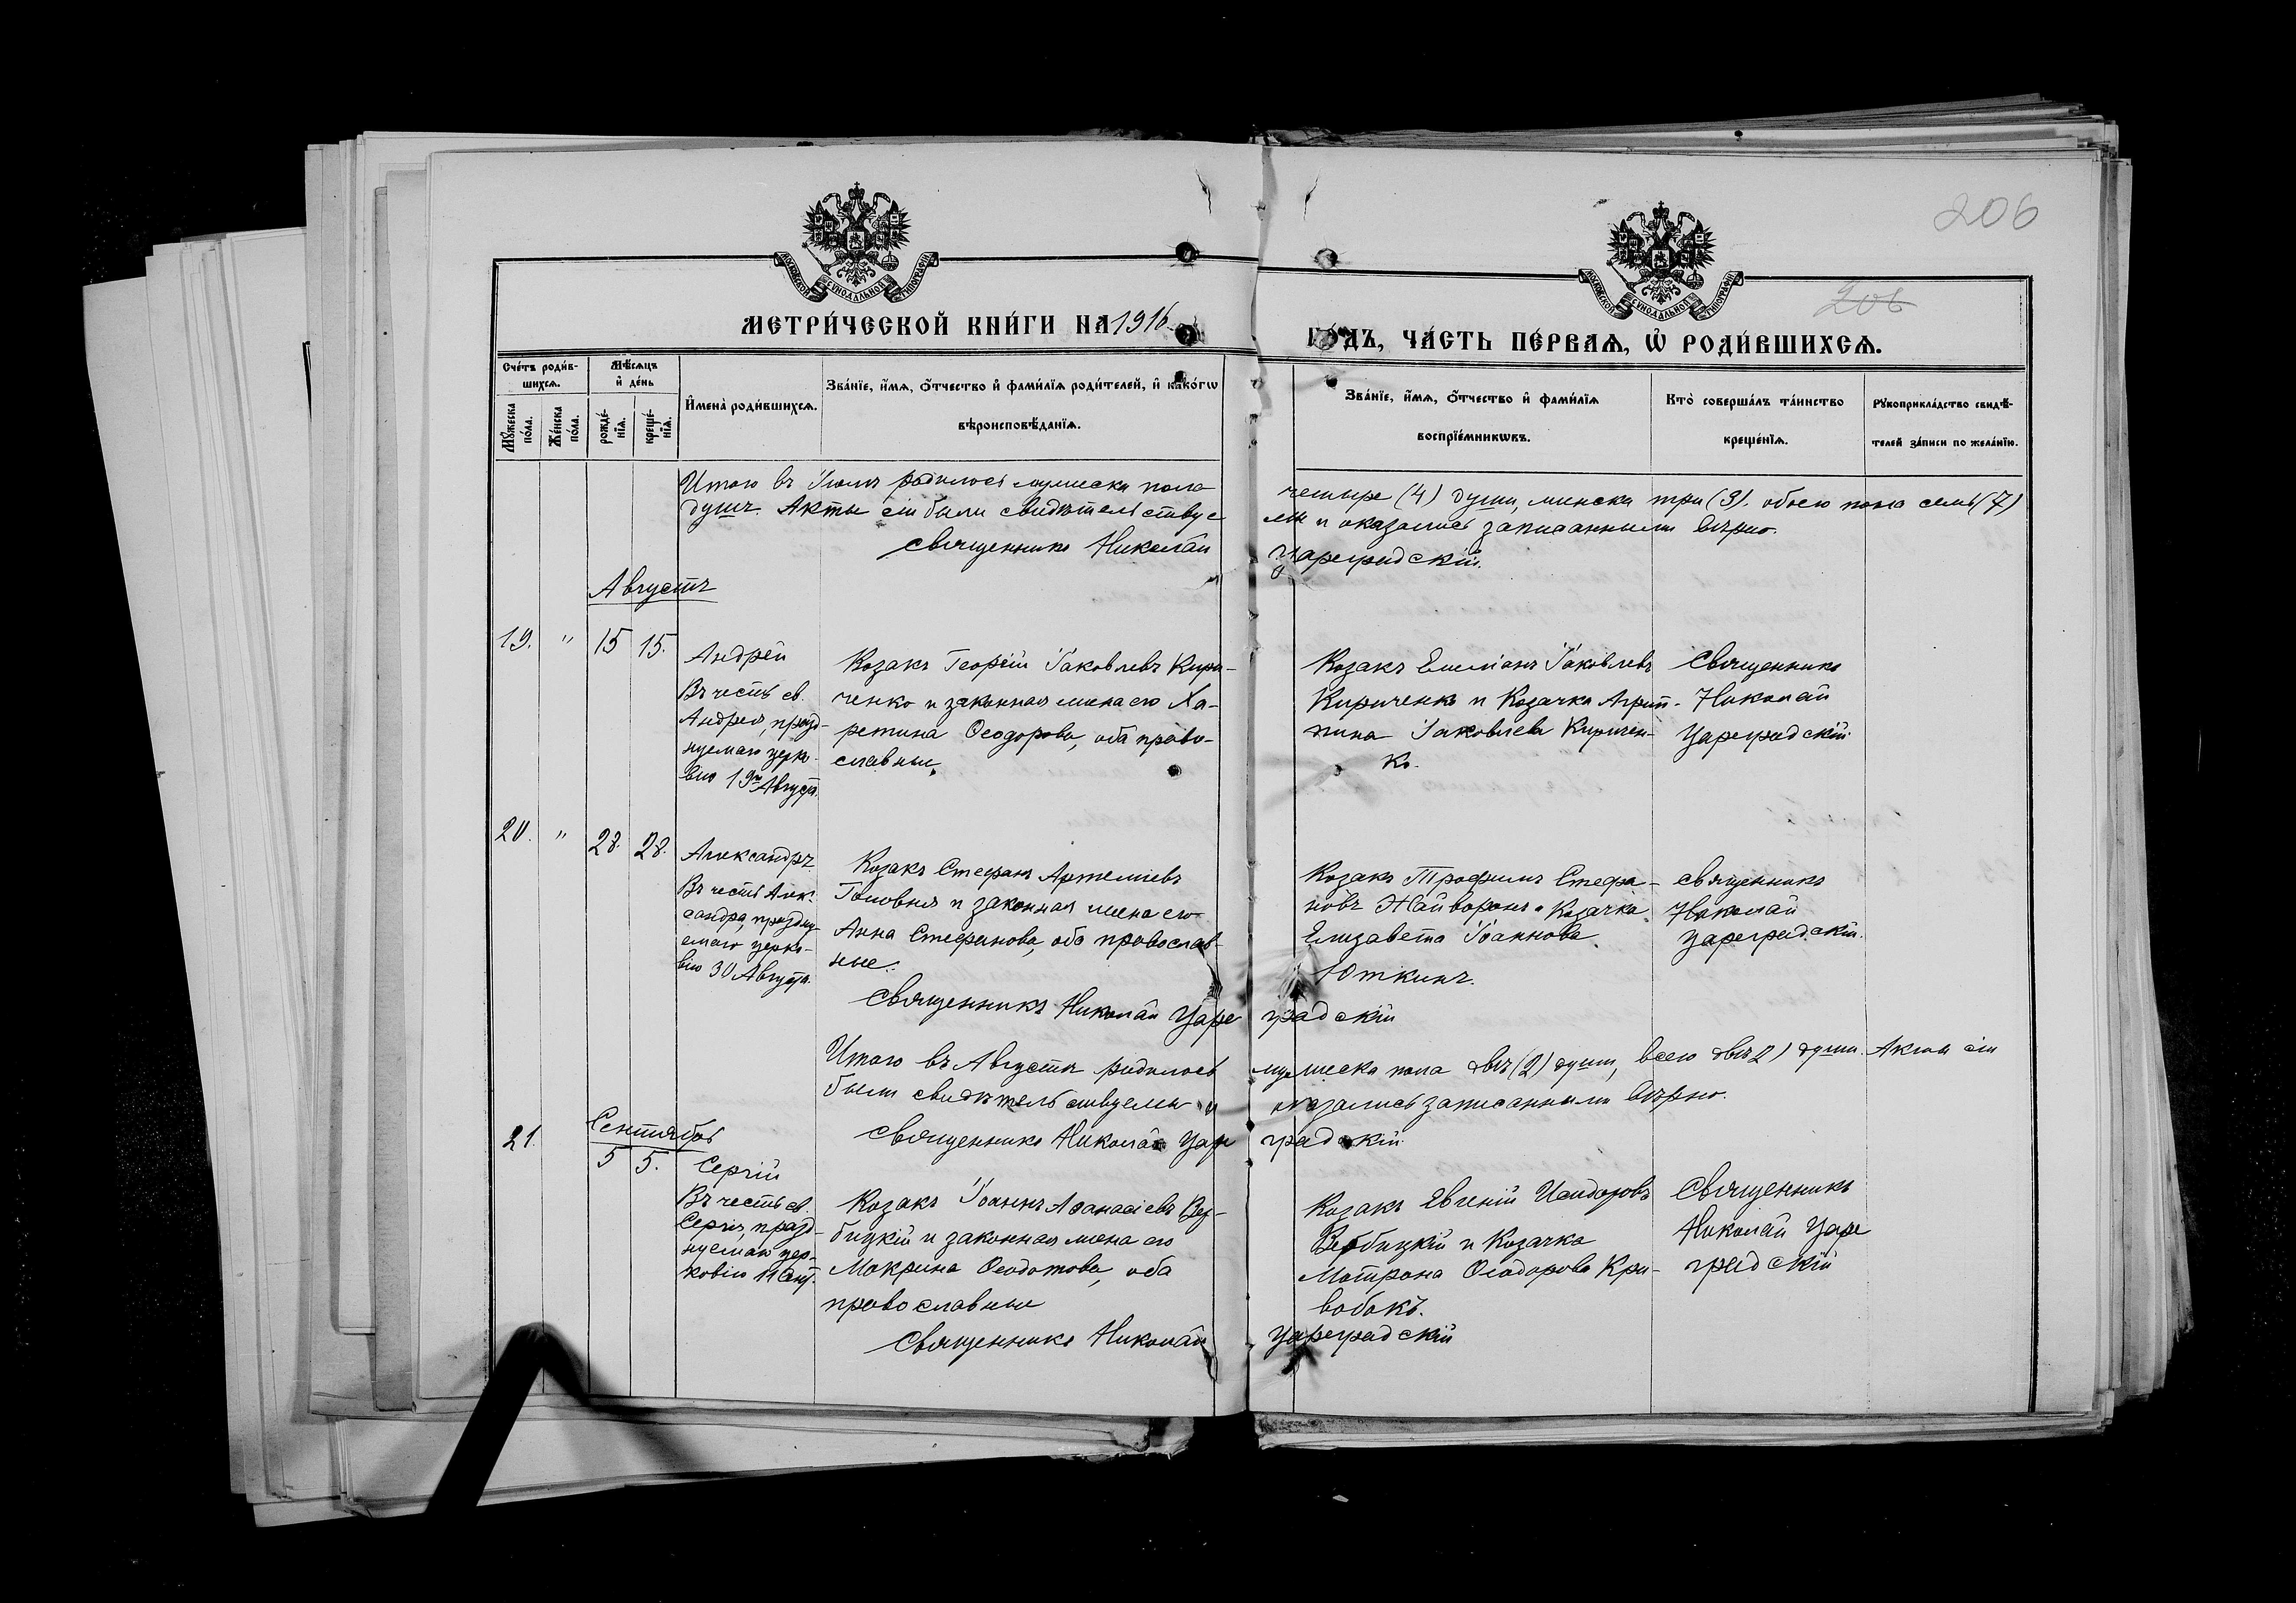 206
206
МОСКОВСКОЙ СѴНОДАЛЬНОЙ ТИПОГРАФІИ
МОСКОВСКОЙ СѴНОДАЛЬНОЙ ТИПОГРАФІИ
МЕТРИ́ЧЕСКОЙ КНИ́ГИ НА 1916
ГО́ДЪ, ЧА́СТЬ ПЕ́РВАѦ, Ѡ҆ РОДИ́ВШИХСѦ.
Сче́тъ роди́в-
шихсѧ.
Мѣ́сѧцъ
и҆ де́нь
Мꙋ́жеска
по́ла.
Же́нска
по́ла.
рожде́-
нїѧ.
креще́-
нїѧ.
И҆мена̀ роди́вшихсѧ.
Зва́нїе, и҆́мѧ, ѻ҆́тчество и҆ фами́лїѧ роди́телей, и҆ како́гѡ
вѣроисповѣ́данїѧ.
Зва́нїе, и҆́мѧ, ѻ҆́тчество и҆ фами́лїѧ
воспрїе́мникѡвъ.
Кто̀ соверша́лъ та́инство
креще́нїѧ.
Рꙋкоприкла́дство свидѣ́-
телей за́писи по жела́нїю.
Итого въ Іюлѣ родилось мужеска пола
четыре (4) души, женска три (3). обоего пола семь (7)
душъ. Акты сіи были свидѣтельствуе
мы и оказались записанными вѣрно.
Священникъ Николай
Цареградскій.
Августъ
19. " 15 15. Андрей
Въ честь св.
Андрея, празд-
нуемаго церко-
вію 19го Августа.
Козакъ Георгій Іаковлевъ Кири-
ченко и законная жена его Ха-
ретина Ѳеодорова, оба право-
славные.
Козакъ Емеліанъ Іаковлевъ
Кириченко и Козачка Агрип-
пина Іаковлева Киричен-
ко.
Священникъ
Николай
Цареградскій
20. " 28. 28. Александръ
Въ честь Алек-
сандра, праздну-
емаго церко-
вію 30 Августа.
Козакъ Стефанъ Артеміевъ
Головня и законная жена его
Анна Стефанова, оба православ-
ные.
Козакъ Трофимъ Стефа-
новъ Жайворонъ и Козачка
Елизавета Іоаннова
Юткинъ.
Священникъ
Николай
Цареградскій.
Священникъ Николай Царе
градскій
Итого въ Августѣ родилось
мужеска пола двѣ (2) души, всего двѣ 2) души. Акты сіи
были свидѣтельствуемы и
оказались записанными вѣрно.
Священникъ Николай Царе
градскій
Сентябрь
21. 5 5. Сергій
Въ честь св.
Сергія, празд-
нуемаго цер-
ковію 11 Сент.
Козакъ Іоаннъ Аѳанасіевъ Вер-
бицкій и законная жена его
Макрина Ѳеодотова, оба
православные
Козакъ Евгеній Исидоровъ
Вербицкій и Козачка
Матрона Ѳеодорова Кри-
вобокъ.
Священникъ
Николай Царе
градскій
Священникъ Николай
Цареградскій